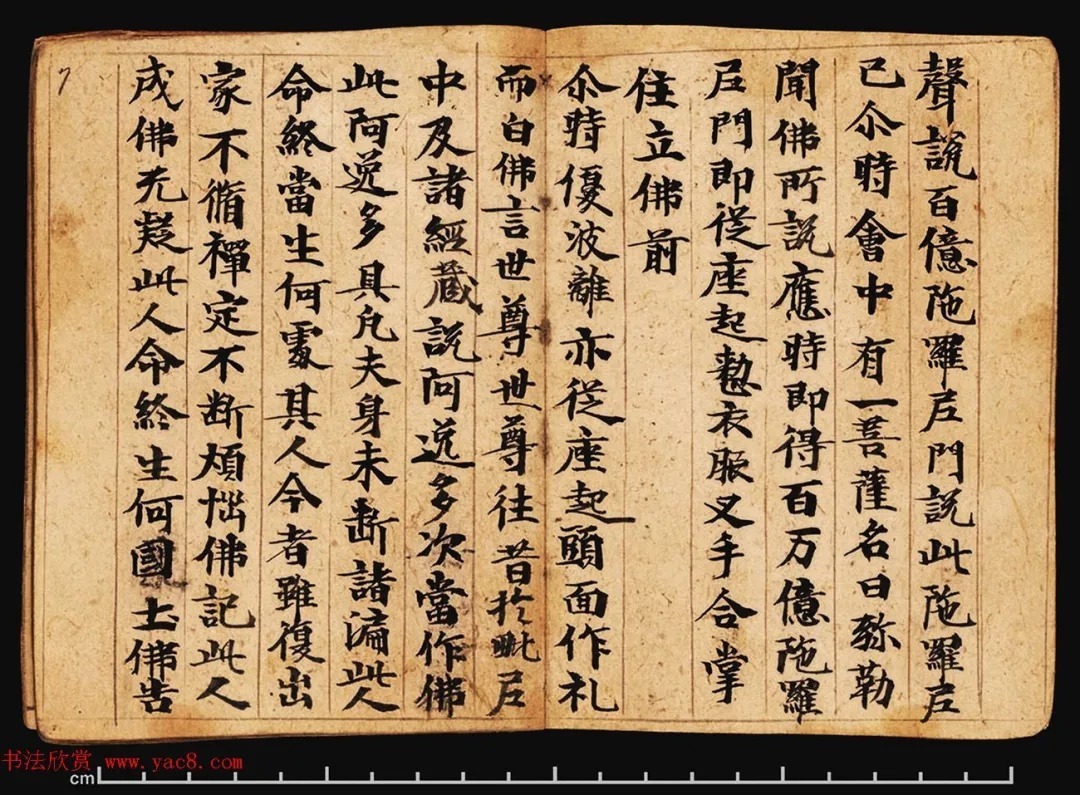 聲說百億陁羅尼門說此陁羅尼
已尒時會中有一菩薩名曰弥勒
聞佛所說應時即得百万億陁羅
尼門即從座起憗衣服叉手合掌
住立佛前
尒時優波離亦從座起頭面作礼
而白佛言世尊世尊往昔扵毗尼
中及諸經藏說阿逸多次當作佛
此阿逸多具凡夫身未断諸漏此人
命終當生何處其人今者雖復出
家不循禪定不断煩惱佛記此人
成佛无疑此人命終生何國土佛告
7
书法欣赏 www.yac8.com
cm